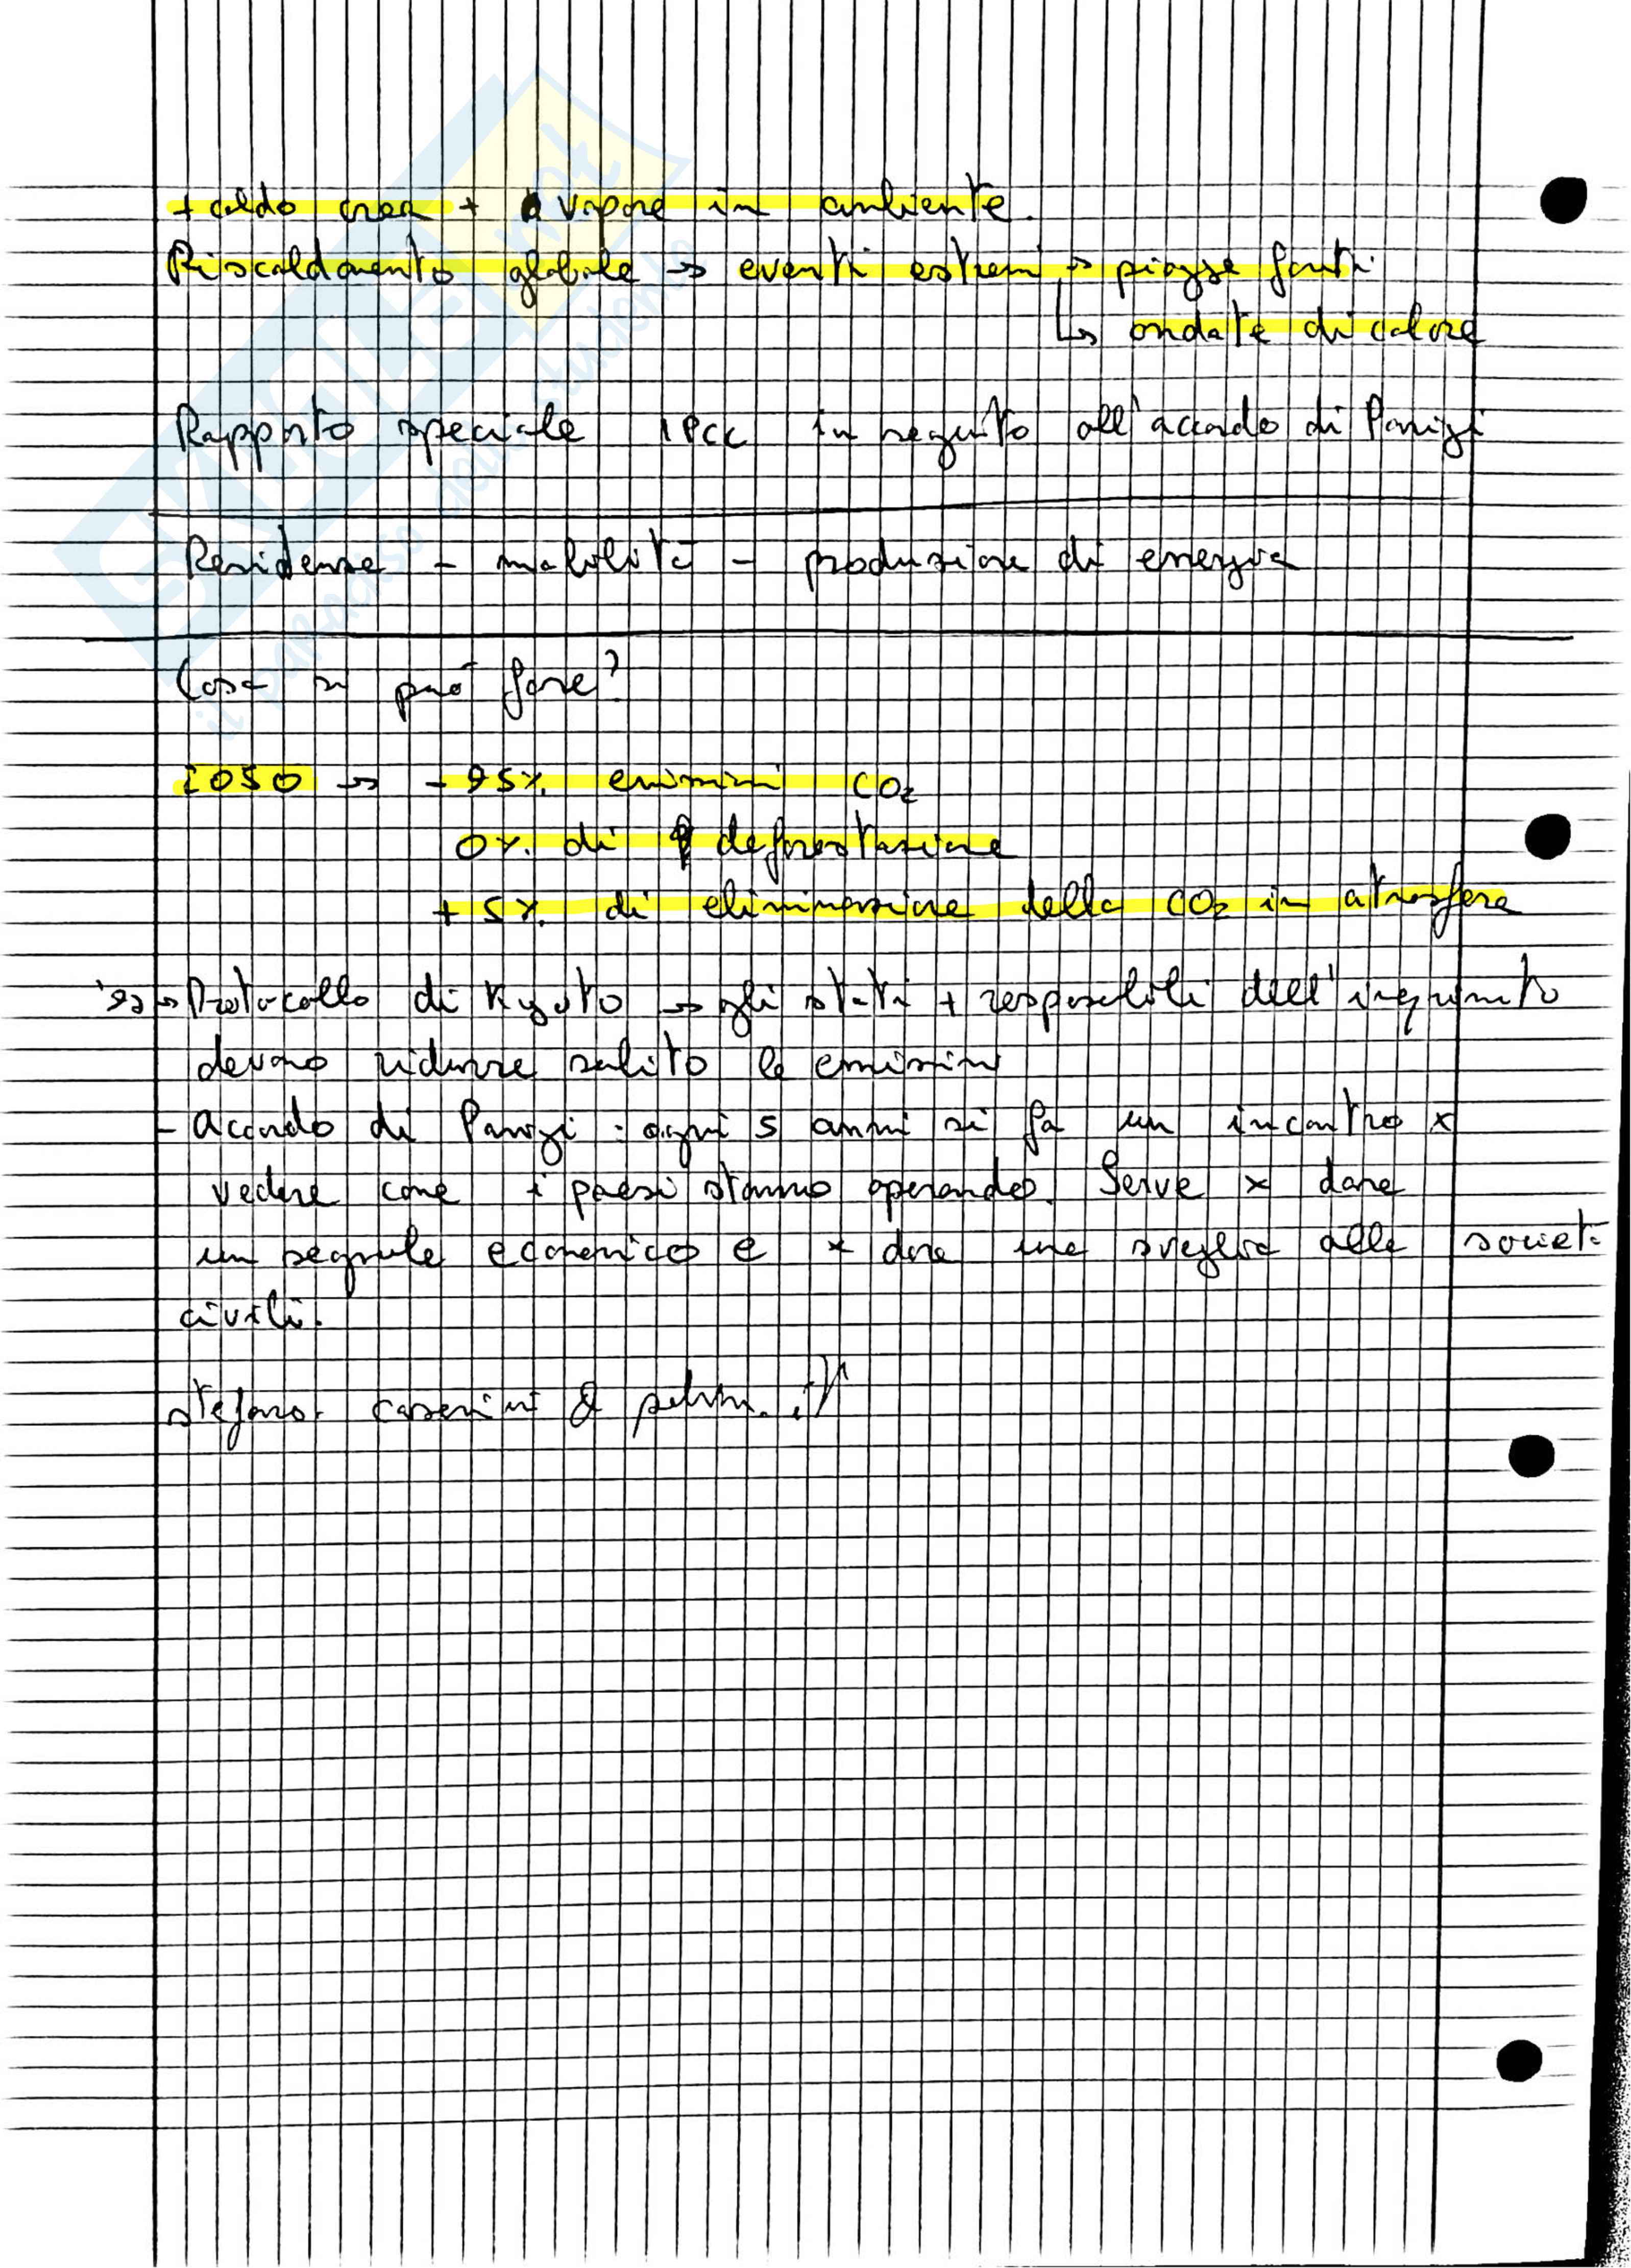 + caldo crea + vapore in ambiente.
Riscaldamento globale → eventi estremi → piogge forti
↳ ondate di calore
Rapporto speciale IPCC in seguito all'accordo di Parigi
Residenze - mobilità - produzione di energia
Cosa si può fare?
2050 → - 95% emissioni CO2
0% di deforestazione
+ 5% di eliminazione della CO2 in atmosfera
→ Protocollo di Kyoto → gli stati + responsabili dell'inquinamento
devono ridurre subito le emissioni
- Accordo di Parigi : ogni 5 anni si fa un incontro x
vedere come i paesi stanno operando. Serve x dare
un segnale economico e x dare una sveglia alle società
civili.
stefano. caserini @ polimi.it
SKUOLA.net
il paradiso dello studente